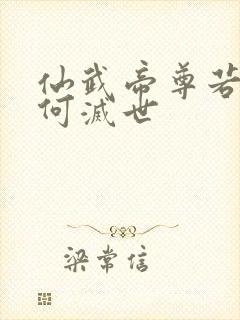 仙武帝尊若
何滅世
梁常信